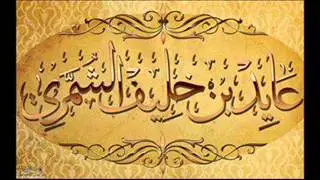 عَايِد بِن خليف الشَّمَّرِي